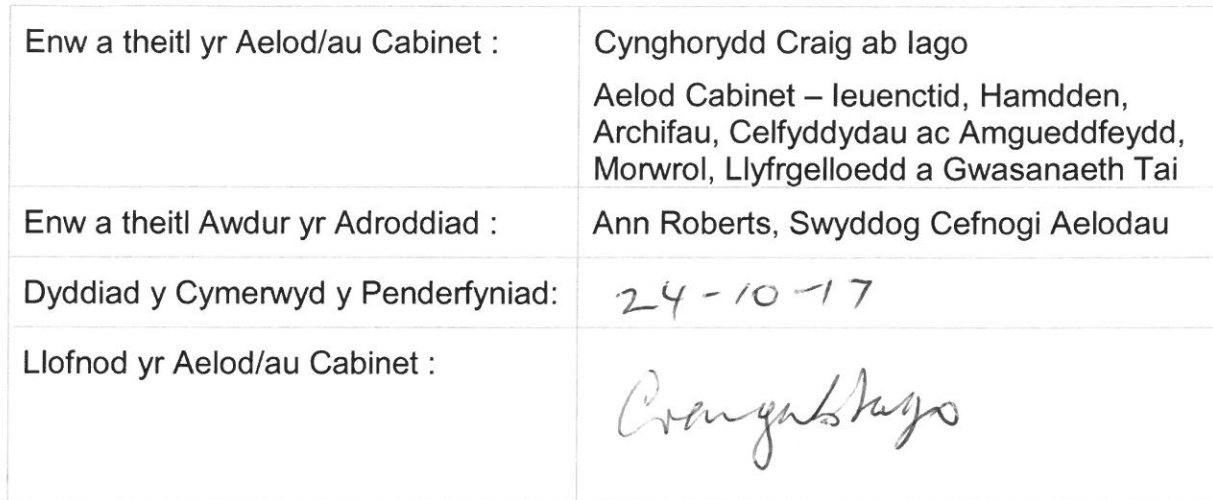 Enw a theitl yr Aelod/au Cabinet :
Cynghorydd Craig ab Iago
Aelod Cabinet – Ieuenctid, Hamdden,
Archifau, Celfyddydau ac Amgueddfeydd,
Morwrol, Llyfrgelloedd a Gwasanaeth Tai
Enw a theitl Awdur yr Adroddiad :
Ann Roberts, Swyddog Cefnogi Aelodau
Dyddiad y Cymerwyd y Penderfyniad:
24-10-17
Llofnod yr Aelod/au Cabinet :
Craig ab Iago